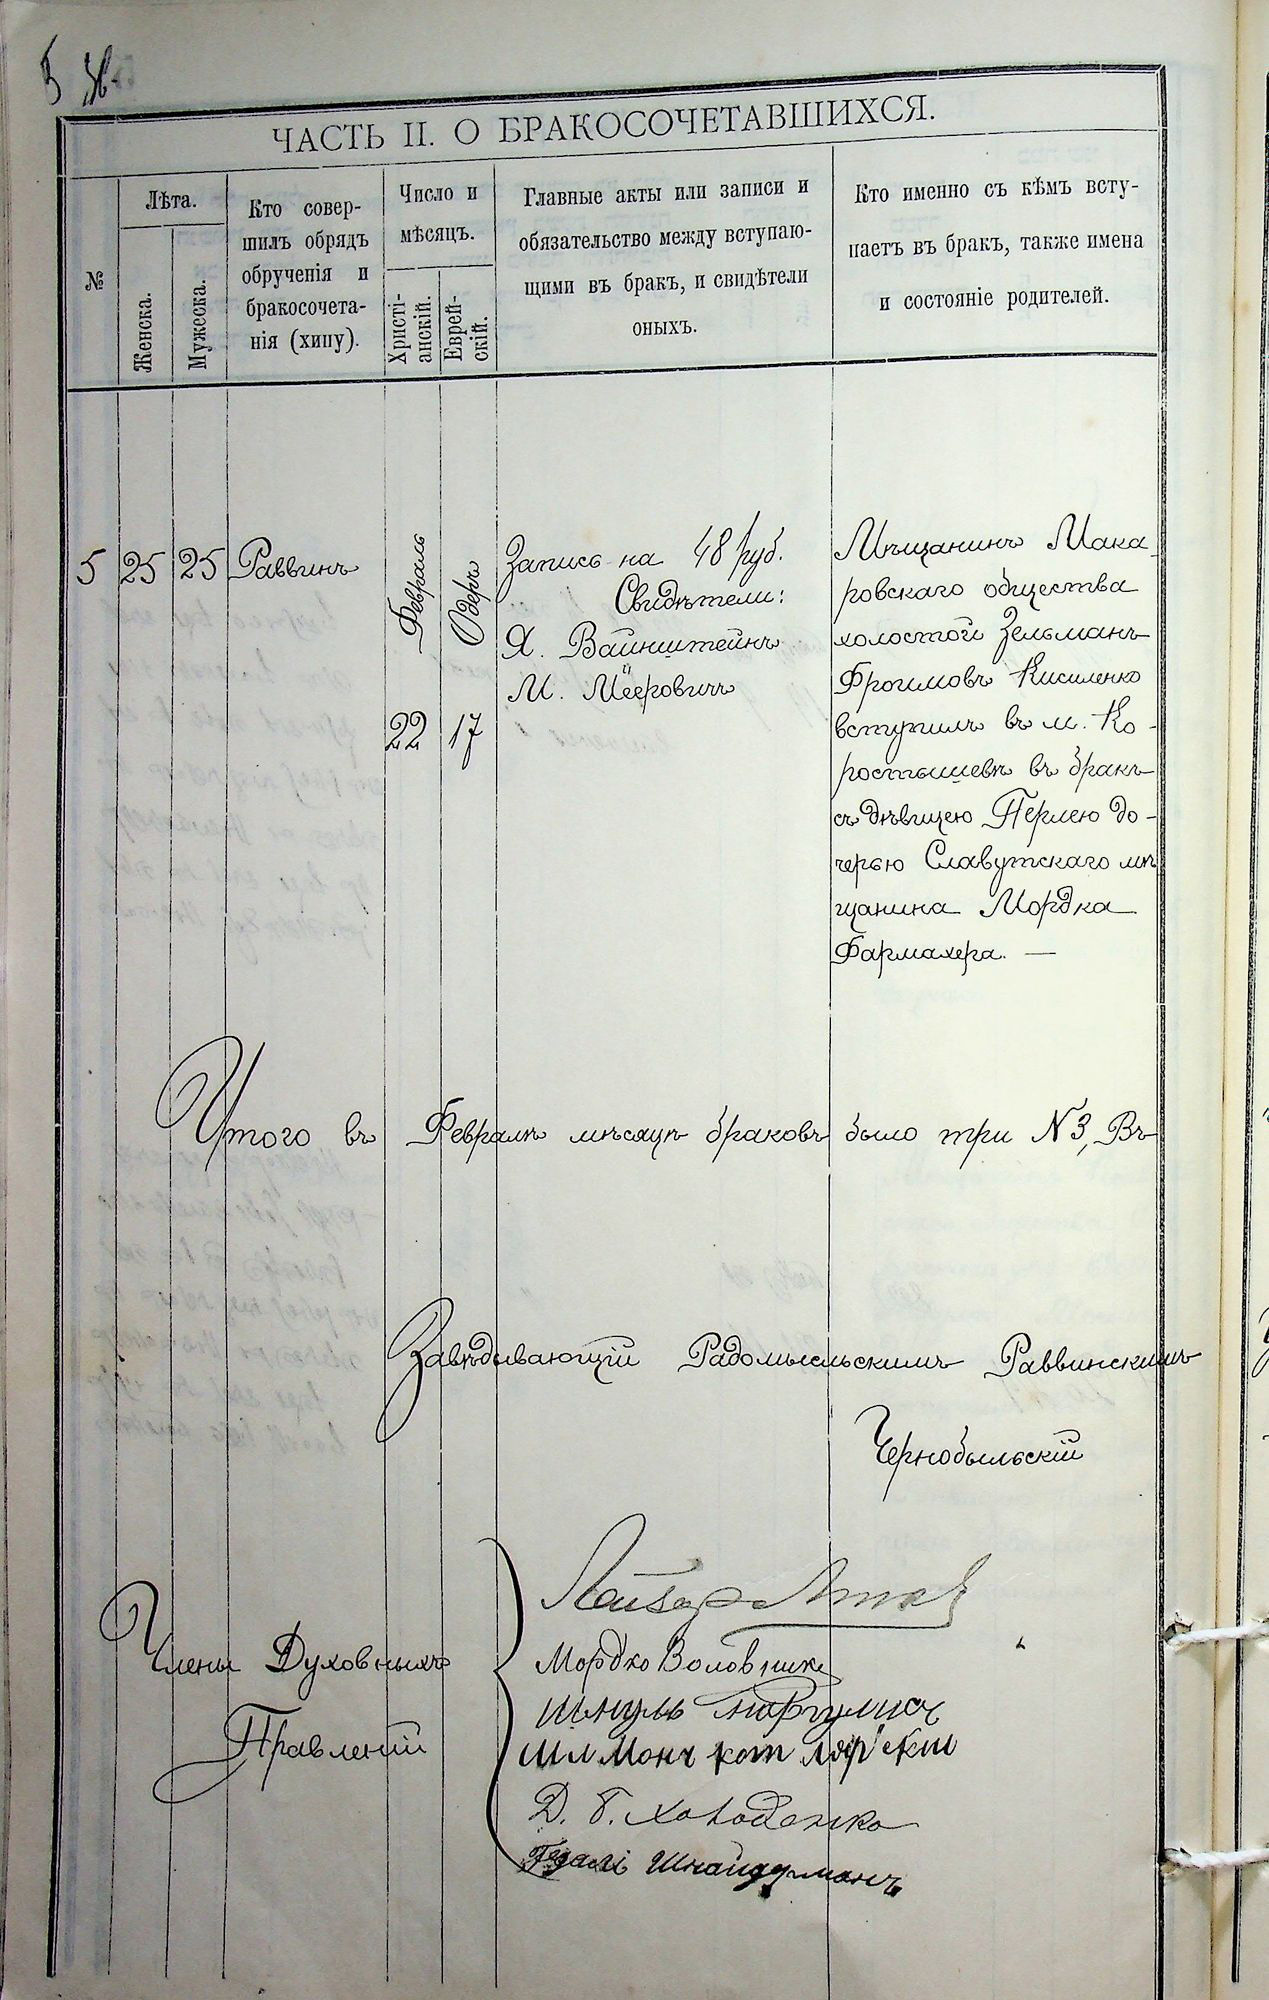 ЧАСТЬ II. О БРАКОСОЧЕТАВШИХСЯ.
№
Лѣта.
Женска.
Мужеска.
Кто совер-
шилъ обрядъ
обрученія и
бракосочета-
нія (хипу).
Число и
мѣсяцъ.
Христі-
анскій.
Еврей-
скій.
Главные акты или записи и
обязательство между вступаю-
щими въ бракъ, и свидѣтели
оныхъ.
Кто именно съ кѣмъ всту-
паетъ въ бракъ, также имена
и состояніе родителей.
5
25
25
Раввинъ
Февраль
22
Одеръ
17
Запись на 48 руб.
Свидѣтели:
Я. Вайнштейнъ
М. Мееровичъ
Мѣщанинъ Мака-
ровскаго общества
холостой Зельманъ
Фроимовъ Кисиленко
вступилъ въ м. Ко-
ростышевѣ въ бракъ
съ дѣвицею Перлею до-
черью Славутскаго мѣ
щанина Мордка
Фармахера. —
Итого въ Февралѣ мѣсяцѣ браковъ было три N 3, Въ
Завѣдывающій Радомысльскимъ Раввинскимъ
Чернобыльскій
Члены Духовныхъ
Правленій
Мордко Воловик
Шмуль Маргулис
Шлмонъ Котлярскій
Д. Б. Холоденко
Гдалі Шнайдерманъ